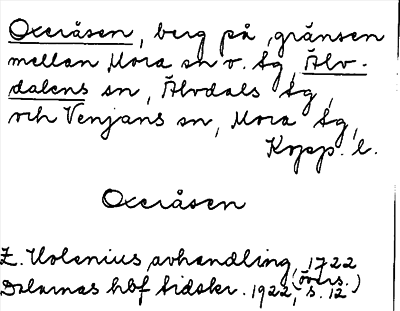 Oxeråsen, berg på gränsen
mellan Mora sn o. Sg, Älv-
dalens sn, Älvdals Sg,
och Venjans sn, Mora Sg,
Kopp. l.
Oxeråsen
Z. Holenius avhandling, 1722
(övers.)
Dalarnas hbf tidskr. 1922, s. 12